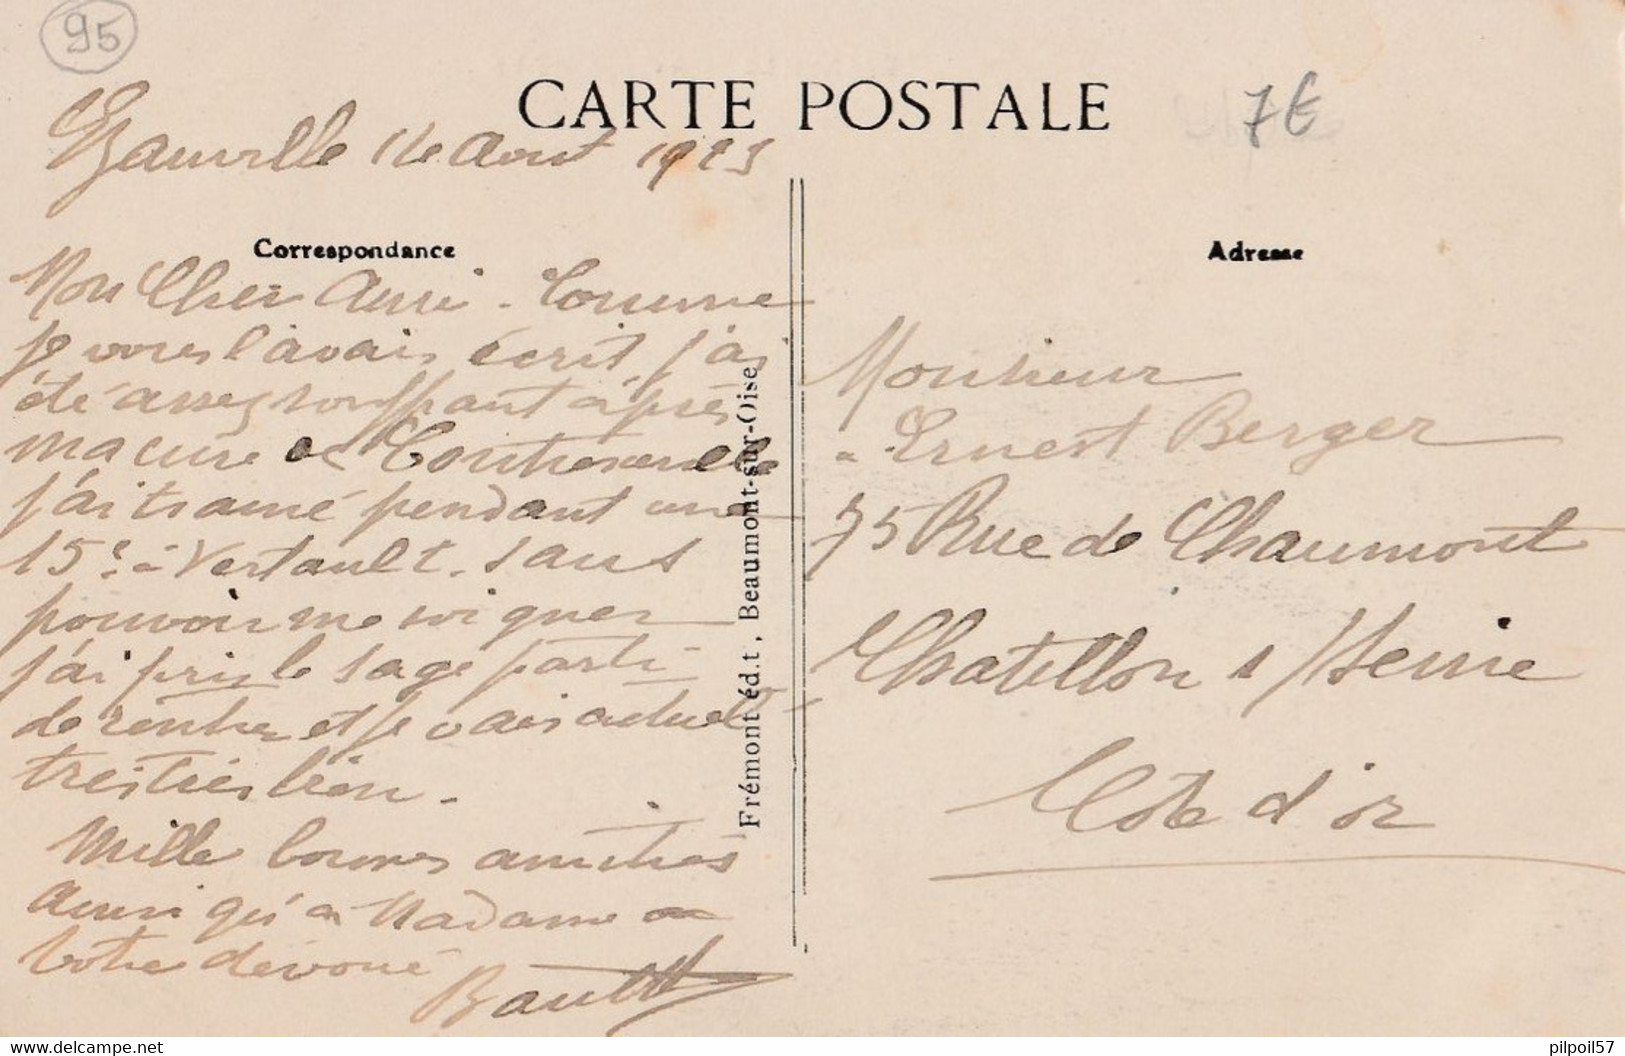 95
CARTE POSTALE
7€
Ezanville 1 le Aout 1923
Correspondance
Adresse
Mon Cher Ami - Comme
je vous l'avais écrit, j'ai
été assez souffrant après
ma cure de Contrexeville
j'ai trainé pendant une
15e à Vertault. sans
pouvoir me soigner
j'ai pris le sage parti
de rentrer et je vais actuell
très très bien.
Mille bonnes amitiés
ainsi qu'à Madame
Votre dévoué
Frémont éd.t, Beaumont-sur-Oise
Monsieur
Ernest Berger
75 Rue de Chaumont
Chatillon s/Seine
Côte d'or
www.delcampe.net
pilpoil57